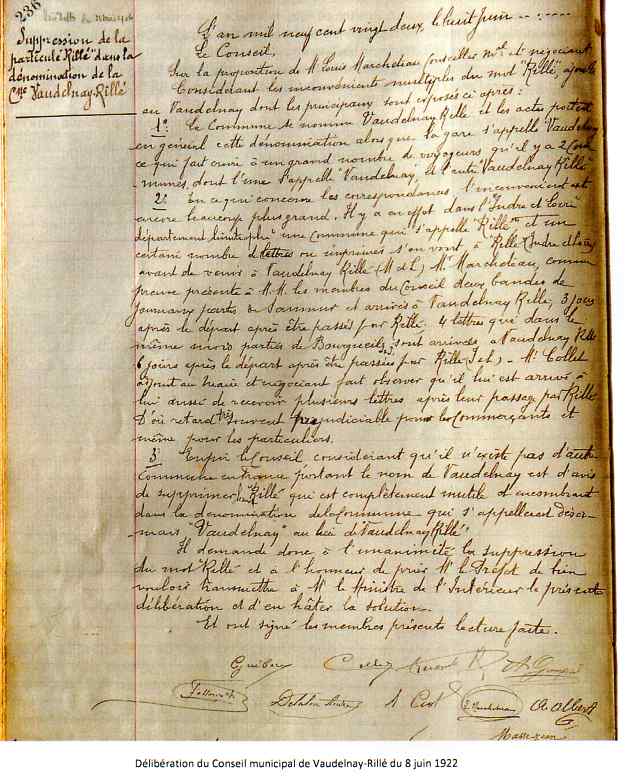 236
Suppression de la
particule "Rillé" dans la
dénomination de la
Cne Vaudelnay-Rillé
L'an mil neuf cent vingt deux, le huit Juin
Le Conseil,
Sur la proposition de Mr Louis Marchedeau Conseiller Mal et négociant
Considérant les inconvénients multiples du mot "Rillé", ajouté
au Vaudelnay dont les principaux sont exposés ci après:
1°: La Commune se nomme Vaudelnay Rillé et les actes portent
en général cette dénomination alors que la gare s'appelle "Vaudelnay
ce qui fait croire à un grand nombre de voyageurs qu'il y a 2 Com
munes, dont l'une s'appelle "Vaudelnay, et l'autre "Vaudelnay Rillé"
2°: En ce qui concerne les correspondances l'inconvénient est
encore beaucoup plus grand. Il y a en effet dans l'Indre et Loire
département limitrophe une commune qui s'appelle "Rillé", et un
certain nombre de lettres ou imprimés s'en vont, à Rillé Indre et Loire
avant de venir à Vaudelnay Rillé (M et L) Mr Marchedeau, comme
preuve présente à M.M. les membres du Conseil deux bandes de
journaux partis de Saumur et arrivés à Vaudelnay Rillé, 3 jours
après le départ après être passés par Rillé, 4 lettres qui dans le
même mois parties de Bourgueil sont arrivées à Vaudelnay Rillé
6 jours après le départ après être passées par Rillé (I et L) - Mr Collet
adjoint au maire et négociant fait observer qu'il lui est arrivé à
lui aussi de recevoir plusieurs lettres après leur passage par Rillé
D'où retard très souvent préjudiciable pour les Commerçants et
même pour les particuliers.
3° Enfin le Conseil considérant qu'il n'existe pas d'autre
Commune en France portant le nom de Vaudelnay est d'avis
de supprimer Rillé qui est complètement inutile et encombrant
dans la dénomination de la Commune qui s'appellerait désor-
mais "Vaudelnay" au lieu de Vaudelnay Rillé"
Il demande donc à l'unanimité la suppression
du mot "Rillé et a l'honneur de prier Mr le Préfet de bien
vouloir transmettre à Mr le Ministre de l'Intérieur la présente
délibération et d'en hâter la solution.
Et ont signé les membres présents lecture faite.
Collet
A Albert
Délibération du Conseil municipal de Vaudelnay-Rillé du 8 juin 1922